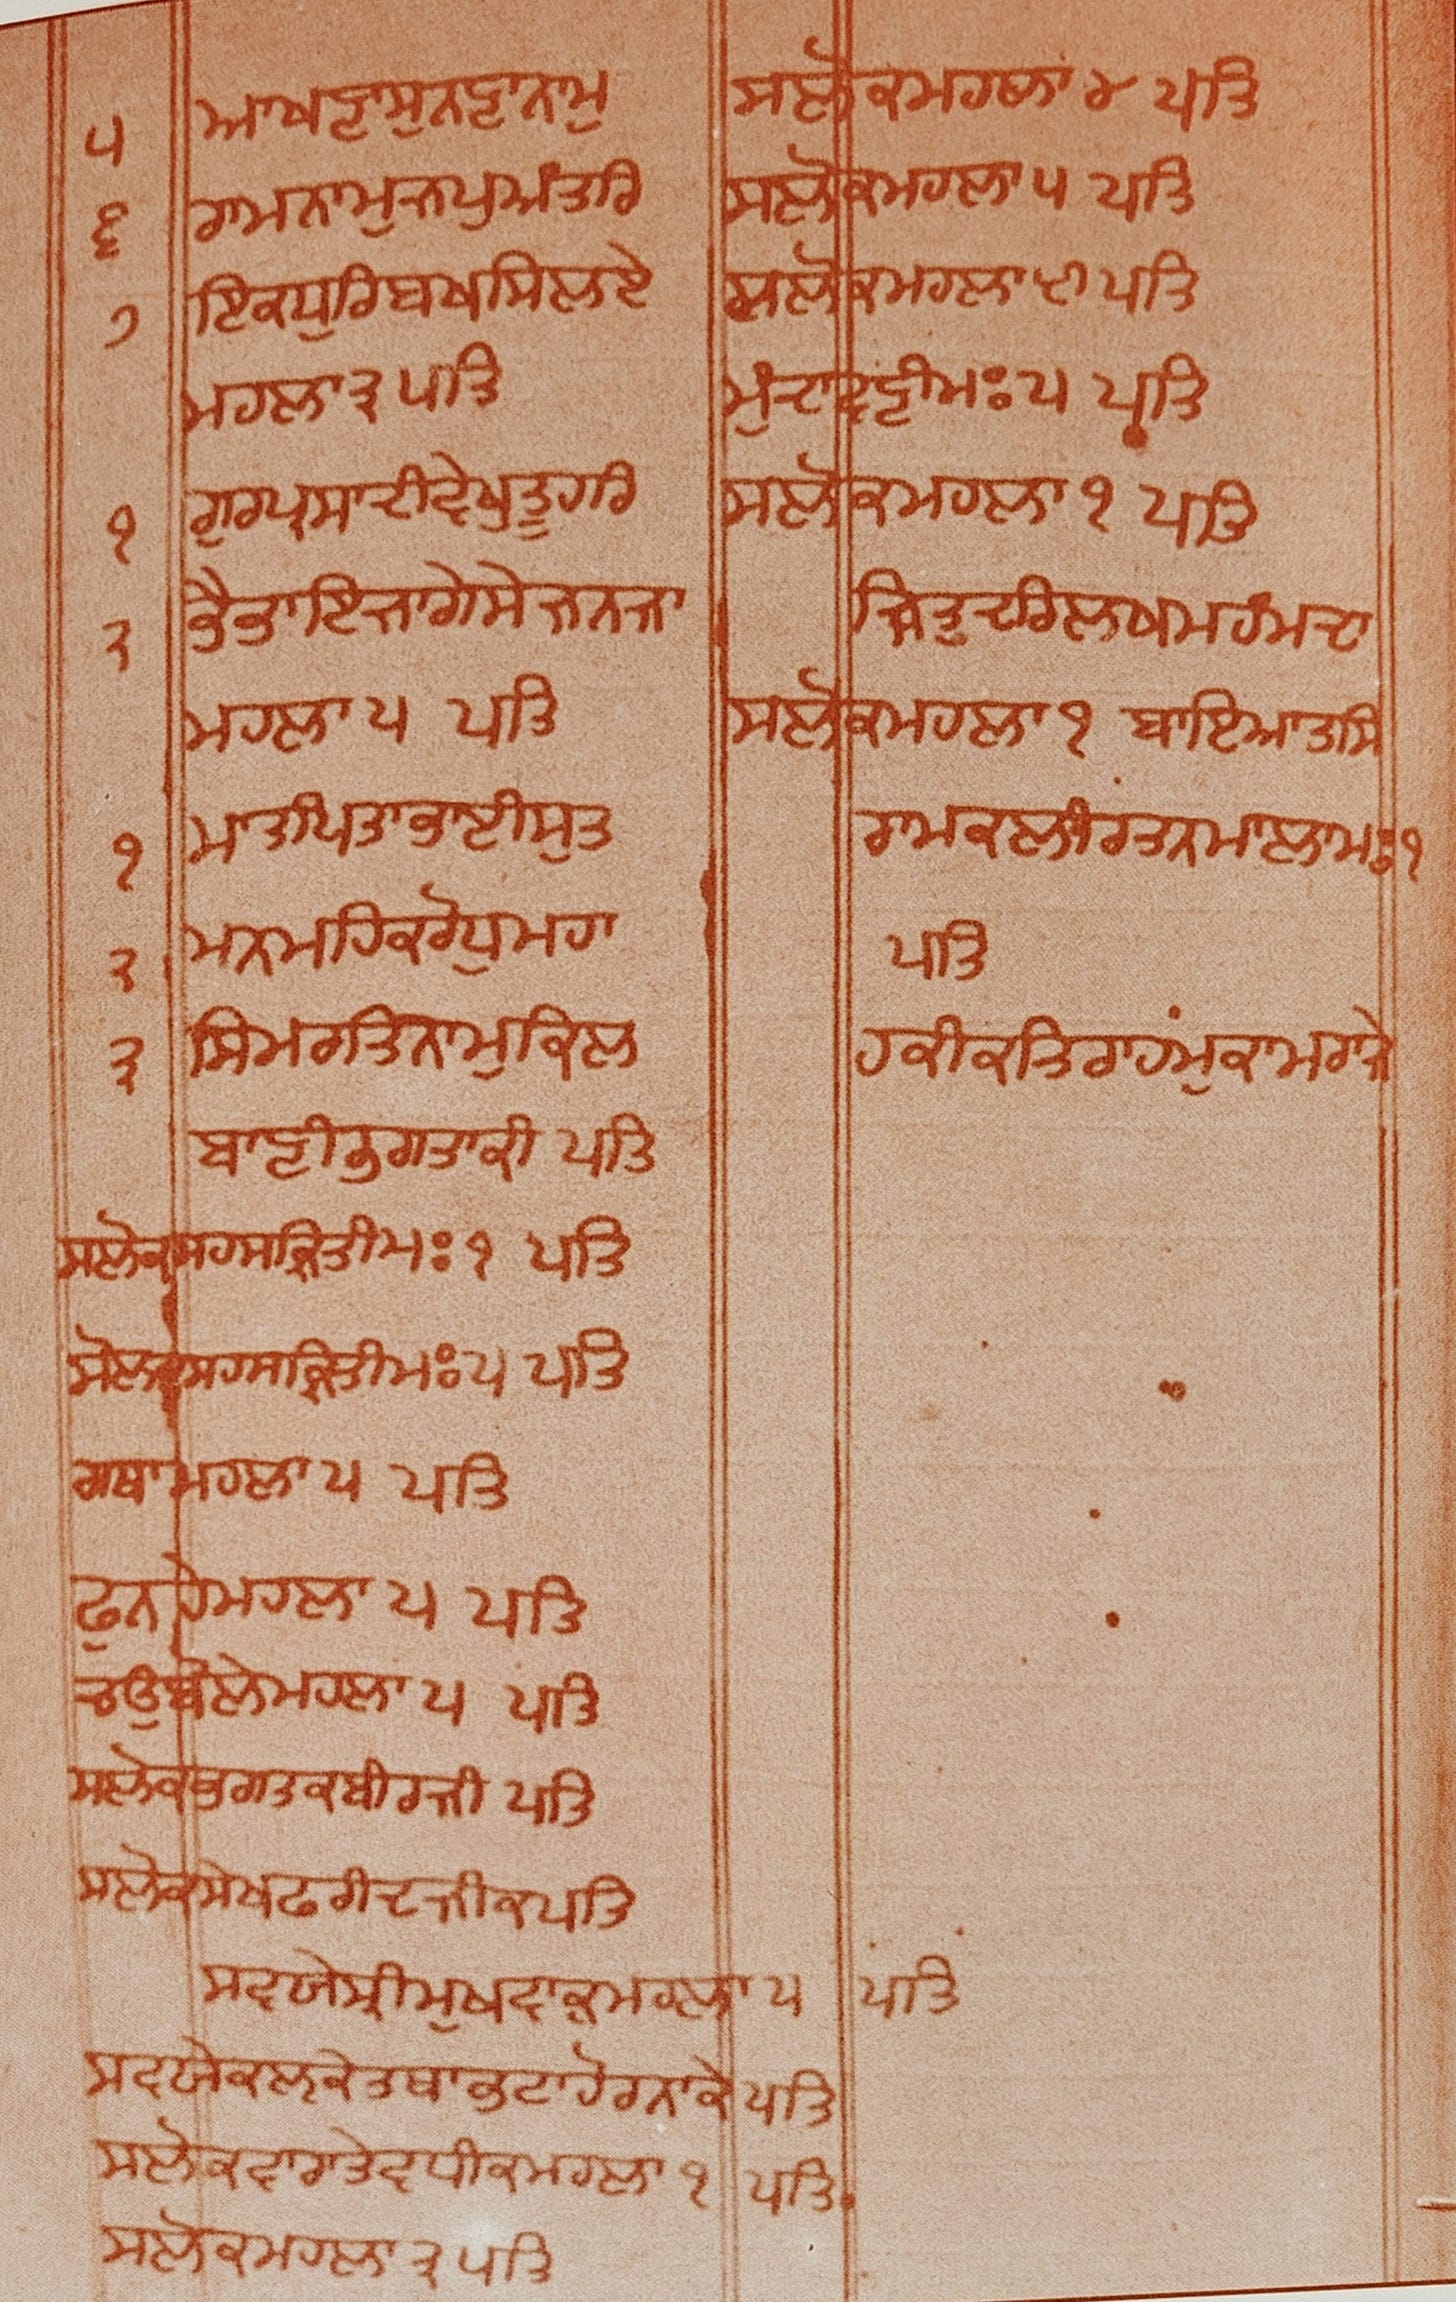 ੫ ਆਖਣਾਸੁਨਣਾਨਾਮੁ
੬ ਰਾਮਨਾਮੁਜਪੁਅੰਤਰਿ
੭ ਇਕਧੁਰਿਬਖਸਿਲਏ
ਮਹਲਾ ੩ ਪਤਿ
੧ ਗੁਰਪਰਸਾਦੀਵੇਖੁਤੂਹਰਿ
੨ ਭੈਭਾਇਜਾਗੇਸੇਜਨਜਾ
ਮਹਲਾ ੫ ਪਤਿ
੧ ਮਾਤਪਿਤਾਭਾਈਸੁਤ
੨ ਮਨਮਹਿਕਰੋਧੁਮਹਾ
੩ ਸਿਮਰਤਿਨਾਮੁਕਿਲ
ਬਾਣੀਭਗਤਾਕੀ ਪਤਿ
ਸਲੋਕਸਹਸਕ੍ਰਿਤੀਮਃ ੧ ਪਤਿ
ਸੋਲਕਸਹਸਕ੍ਰਿਤੀਮਃ ੫ ਪਤਿ
ਗਾਥਾਮਹਲਾ ੫ ਪਤਿ
ਫੁਨਹੇਮਹਲਾ ੫ ਪਤਿ
ਚਉਬੋਲੇਮਹਲਾ ੫ ਪਤਿ
ਸਲੋਕਭਗਤਕਬੀਰਜੀ ਪਤਿ
ਸਲੋਕਸੇਖਫਰੀਦਜੀਕ ਪਤਿ
ਸਵਯੇਸ੍ਰੀਮੁਖਵਾਕ੍ਹਮਹਲਾ ੫ ਪਤਿ
ਸਵਯੇਕਲਕੇਤਥਾਭਟਾਹੋਰਨਾਕੇ ਪਤਿ
ਸਲੋਕਵਾਰਾਤੇਵਧੀਕਮਹਲਾ ੧ ਪਤਿ
ਸਲੋਕਮਹਲਾ ੩ ਪਤਿ
ਸਲੋਕਮਹਲਾ ੪ ਪਤਿ
ਸਲੋਕਮਹਲਾ ੫ ਪਤਿ
ਸਲੋਕਮਹਲਾ ਪਤਿ
ਮੁੰਦਾਵਣੀਮਃ ੫ ਪਤਿ
ਸਲੋਕਮਹਲਾ ੧ ਪਤਿ
ਜਿਤੁਦਰਿਲਖਮਹੰਮਦਾ
ਸਲੋਕਮਹਲਾ ੧ ਬਾਇਆਤਸਿ
ਰਾਮਕਲੀਰਤਨਮਾਲਾਮਃ ੧
ਪਤਿ
ਹਕੀਕਤਿਰਾਹਮੁਕਾਮਰਾਜੇ